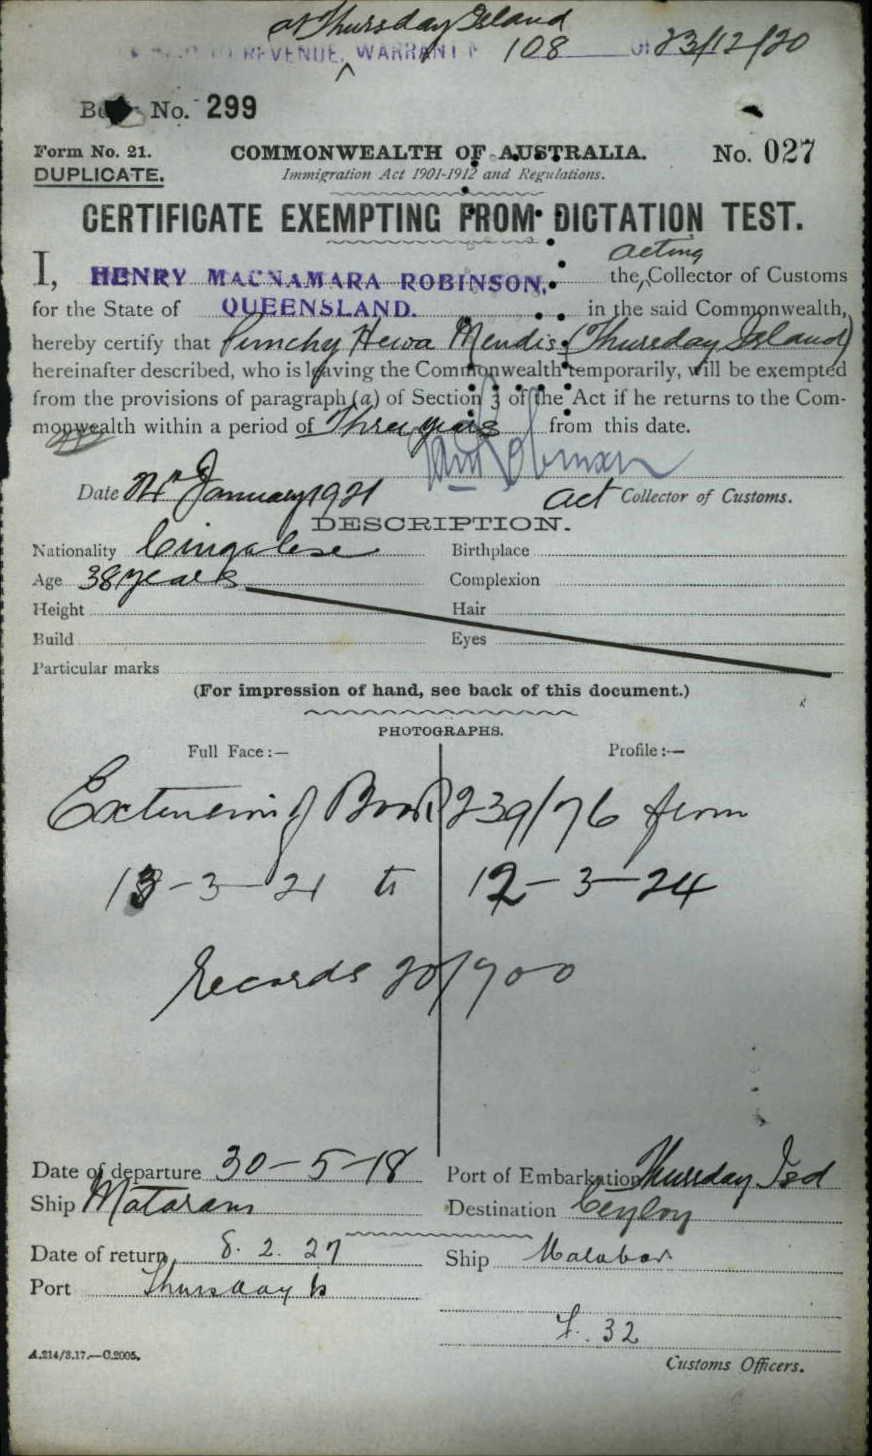 at Thursday Island
REVENUE, WARRANT No 108 of 23/12/20
Book No. 299
Form No. 21. COMMONWEALTH OF AUSTRALIA. No. 027
DUPLICATE. Immigration Act 1901-1912 and Regulations.
CERTIFICATE EXEMPTING FROM DICTATION TEST.
acting
I, HENRY MACNAMARA ROBINSON, the Collector of Customs
for the State of QUEENSLAND. in the said Commonwealth,
hereby certify that Punchy Hewa Mendis (Thursday Island)
hereinafter described, who is leaving the Commonwealth temporarily, will be exempted
from the provisions of paragraph (a) of Section 3 of the Act if he returns to the Com-
monwealth within a period of Three years from this date.
Date January 1921 Act Collector of Customs.
DESCRIPTION.
Nationality Cingalese Birthplace
Age 38 years Complexion
Height Hair
Build Eyes
Particular marks
(For impression of hand, see back of this document.)
PHOTOGRAPHS.
Full Face:— Profile:—
Extension of Book 239/76 from
13-3-21 to 12-3-24
Records 20/700
Date of departure 30-5-18 Port of Embarkation Thursday Isd
Ship Mataram Destination Ceylon
Date of return 8.2.27 Ship Malabar
Port Thursday Is
F. 32
A.214/3.17.—C.2005. Customs Officers.